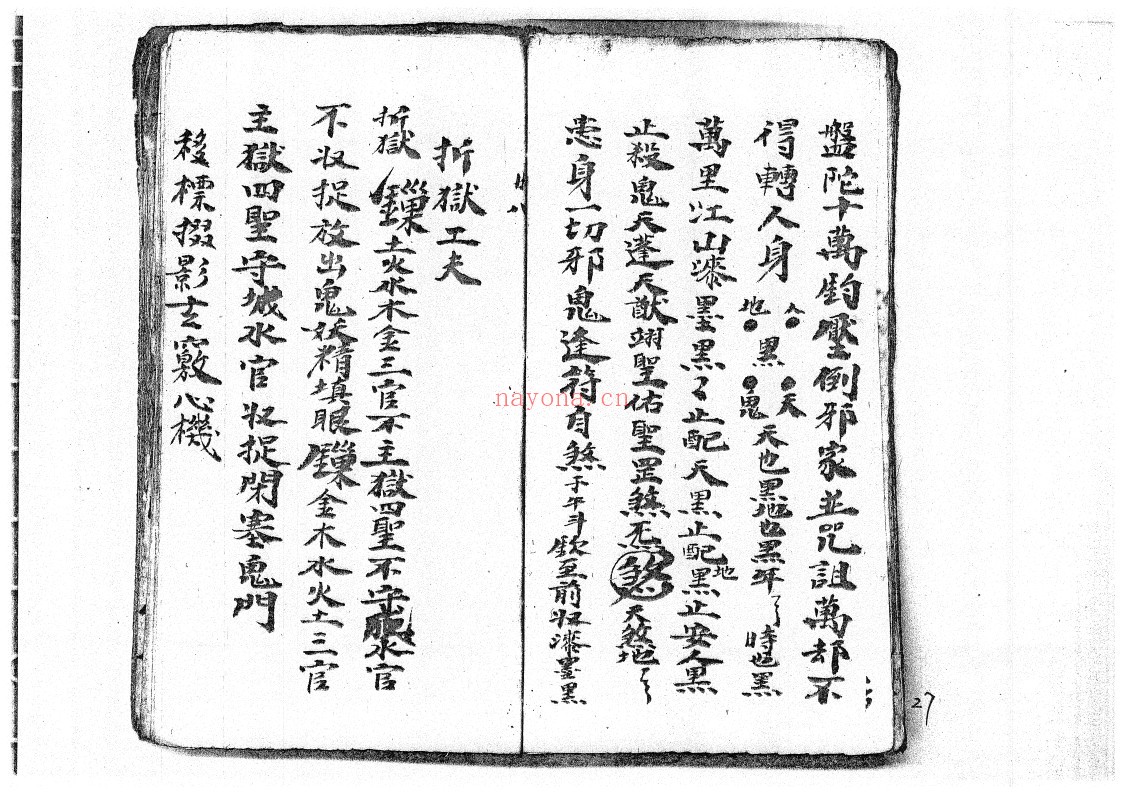 盤陀十萬鈞壓倒邪家並咒詛萬却不
得轉人身 人 地 黑 天 鬼 天也黑地也黑年〻時也黑
萬里江山漆墨黑〻止配天黑止配地黑止安人黑
止殺鬼天蓬天猷翊聖佑聖罡煞死煞天煞地〻
患身一切邪鬼逢符自煞子午斗欽至前収漆墨黑
27
折獄工夫
折獄 鏁土火水木金三官不主獄四聖不守水官
不収捉放出鬼妖精填眼鏁金木水火土三官
主獄四聖守城水官収捉閉塞鬼門
移標掇影玄竅心機
nayona.cn